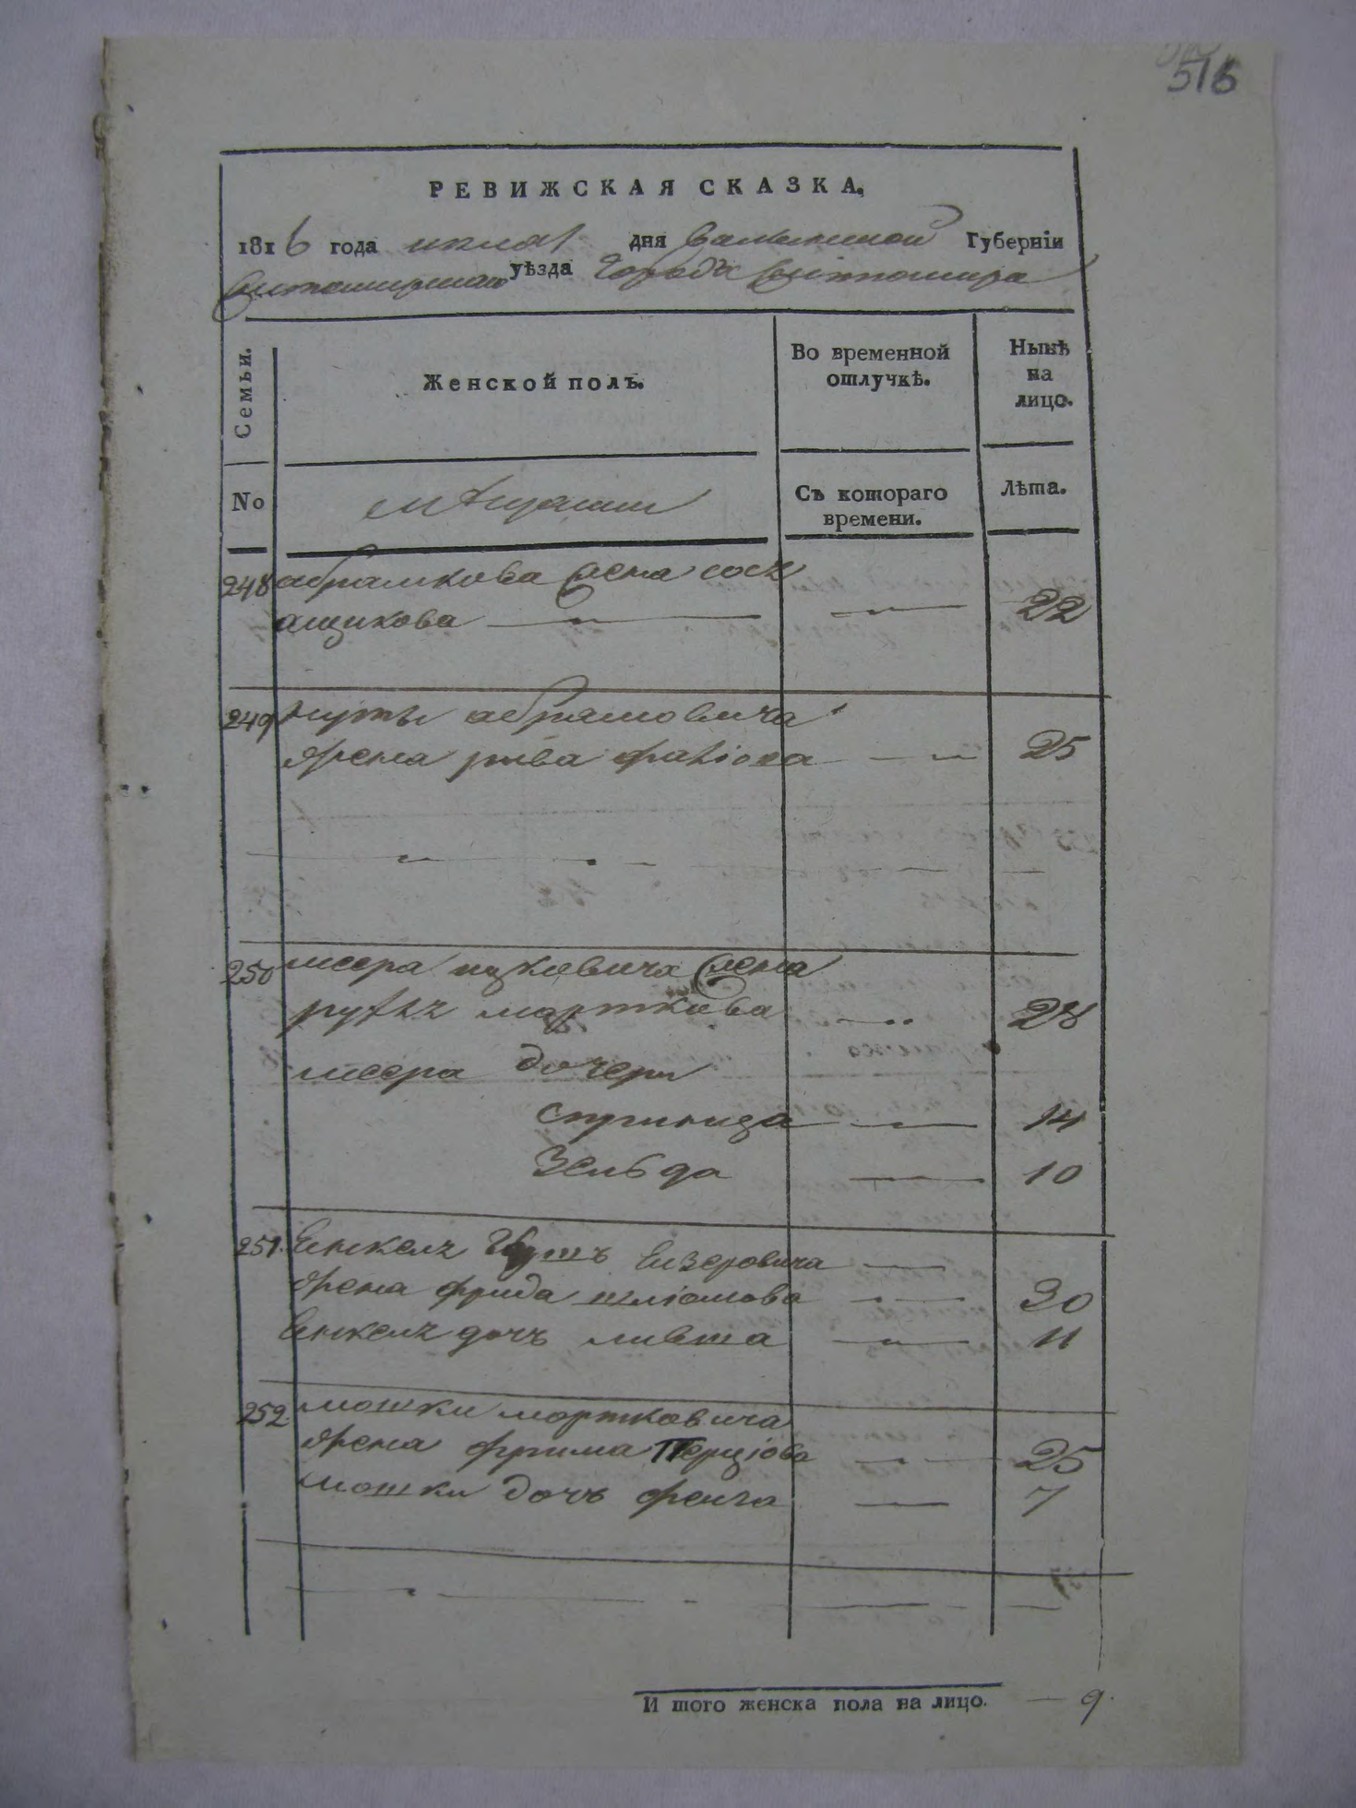 515
РЕВИЖСКАЯ СКАЗКА,
1816 года июля 1 дня Волынской Губерніи
Житомирскаго уѣзда Города Житомира
Семьи.
Женской полъ.
Во временной
отлучкѣ.
Нынѣ
на
лицо.
No
мѣщанъ
Съ котораго
времени.
Лѣта.
248 абрамкова жена сося
22
249 нуты абрамовича
жена рива
25
250 шсера ицковича жена
морткова
28
шсера дочери
стринца 14
Зельда 10
251. Енкеля Лейзеровича
жена фрида шліомова 30
Енкеля дочь ливша 11
252. мошки мортковича
жена фрима Перціова 25
мошки дочь фейга 7
И того женска пола на лицо. — 9.